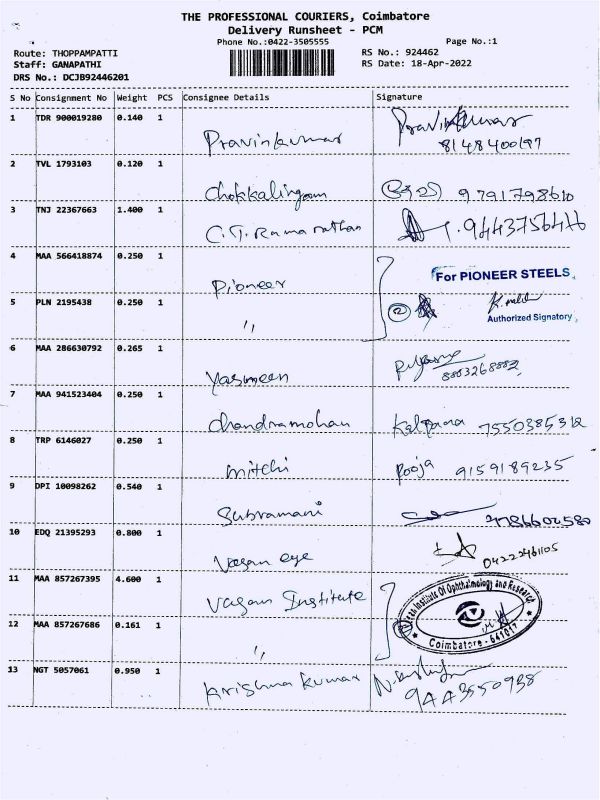 THE PROFESSIONAL COURIERS, Coimbatore
Delivery Runsheet - PCM
Phone No.:0422-3505555 Page No.:1
Route: THOPPAMPATTI RS No.: 924462
Staff: GANAPATHI RS Date: 18-Apr-2022
DRS No.: DCJB92446201
S No Consignment No Weight PCS Consignee Details Signature
1 TDR 900019280 0.140 1 Pravinkumar Pravinkumar
8148400197
2 TVL 1793103 0.120 1 Chokkalingam 9791798610
3 TNJ 22367663 1.400 1 C.T. Ramanathan 9443756416
4 MAA 566418874 0.250 1 Pioneer For PIONEER STEELS,
5 PLN 2195438 0.250 1 " 2
Authorized Signatory
6 MAA 286630792 0.265 1 Yasmeen
8803268882
7 MAA 941523404 0.250 1 Chandramohan Kalpana 7550385312
8 TRP 6146027 0.250 1 mitchi Pooja 9159189235
9 DPI 10098262 0.540 1 Subramani 9786602580
10 EDQ 21395293 0.800 1 Vasan eye 04222461105
11 MAA 857267395 4.600 1 Vasan Institute Institute Of Ophthalmology and Research
12 MAA 857267686 0.161 1 " Coimbatore - 641017
13 NGT 5057061 0.950 1 Krishna kumar
9443550938